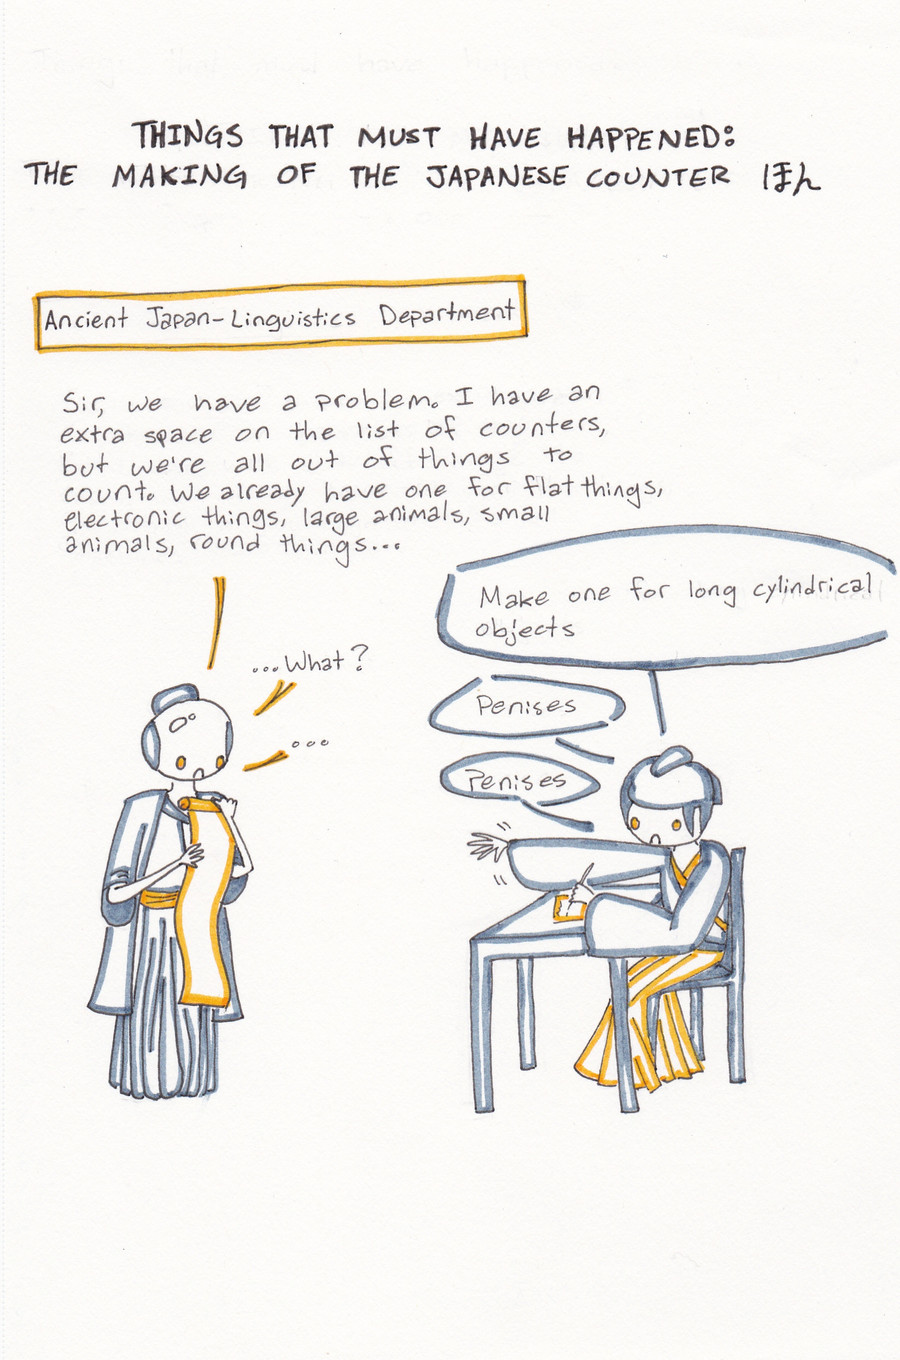 THINGS THAT MUST HAVE HAPPENED:
THE MAKING OF THE JAPANESE COUNTER ほん
Ancient Japan-Linguistics Department
Sir, we have a problem. I have an
extra space on the list of counters,
but we're all out of things to
count. We already have one for flat things,
electronic things, large animals, small
animals, round things...
Make one for long cylindrical
objects
...What?
Penises
...
Penises